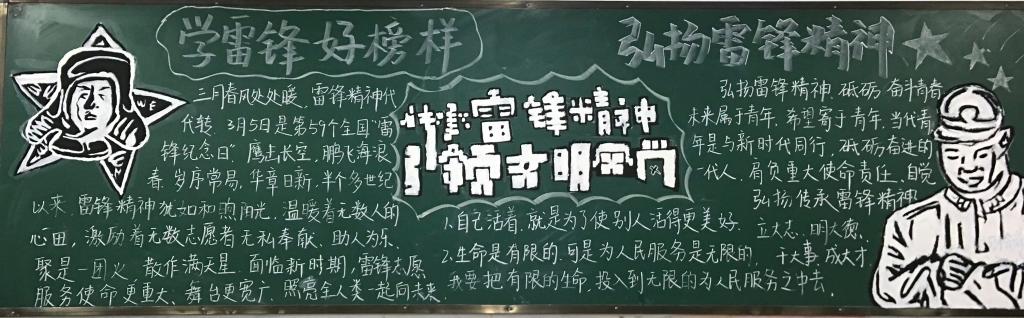 学雷锋 好榜样
三月春风处处暖，雷锋精神代
代转，3月5日是第59个全国“雷
锋纪念日”鹰击长空，鹏飞海浪
春 岁序常易，华章日新，半个多世纪
以来，雷锋精神犹如和煦阳光，温暖着无数人的
心田，激励着无数志愿者无私奉献、助人为乐、
聚是一团火，散作满天星，面临新时期，雷锋志愿
服务使命更重大、舞台更宽广，照亮全人类一起向未来。
传承雷锋精神
引领文明风尚
1.自己活着，就是为了使别人活得更美好.
2.生命是有限的，可是为人民服务是无限的，
我要把有限的生命，投入到无限的为人民服务之中去
弘扬雷锋精神
弘扬雷锋精神，砥砺奋斗青春
未来属于青年，希望寄于青年，当代青
年是与新时代同行，砥砺奋进的
一代人，肩负重大使命责任，自觉
弘扬传承雷锋精神，
立大志、明大德、
干大事、成大才，